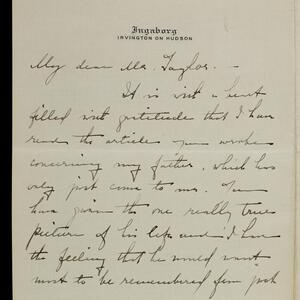 Ingaborg
IRVINGTON ON HUDSON
My dear Mr. Taylor. —
It is with a heart
filled with gratitude that I have
read the article you wrote
concerning my father, which has
only just come to me. You
have given the one really true
picture of his life and I have
the feeling that he would want
most to be remembered from just